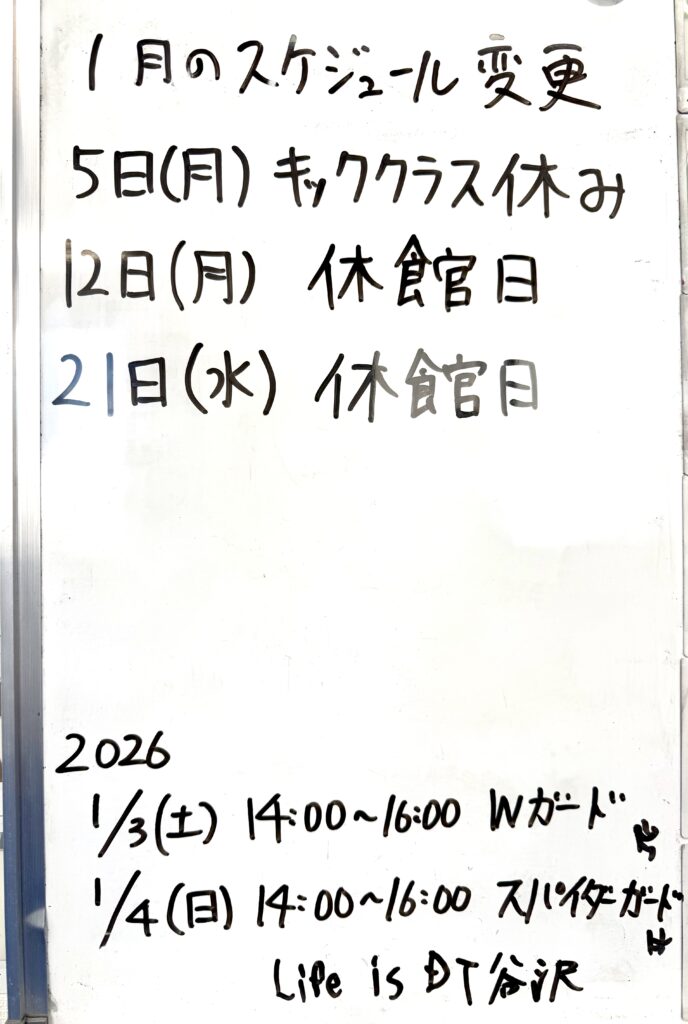 1月のスケジュール変更
5日(月) キッククラス休み
12日(月) 休館日
21日(水) 休館日
2026
1/3(土) 14:00~16:00 Wガード
1/4(日) 14:00~16:00 スパイダーガード
Life is DT谷沢